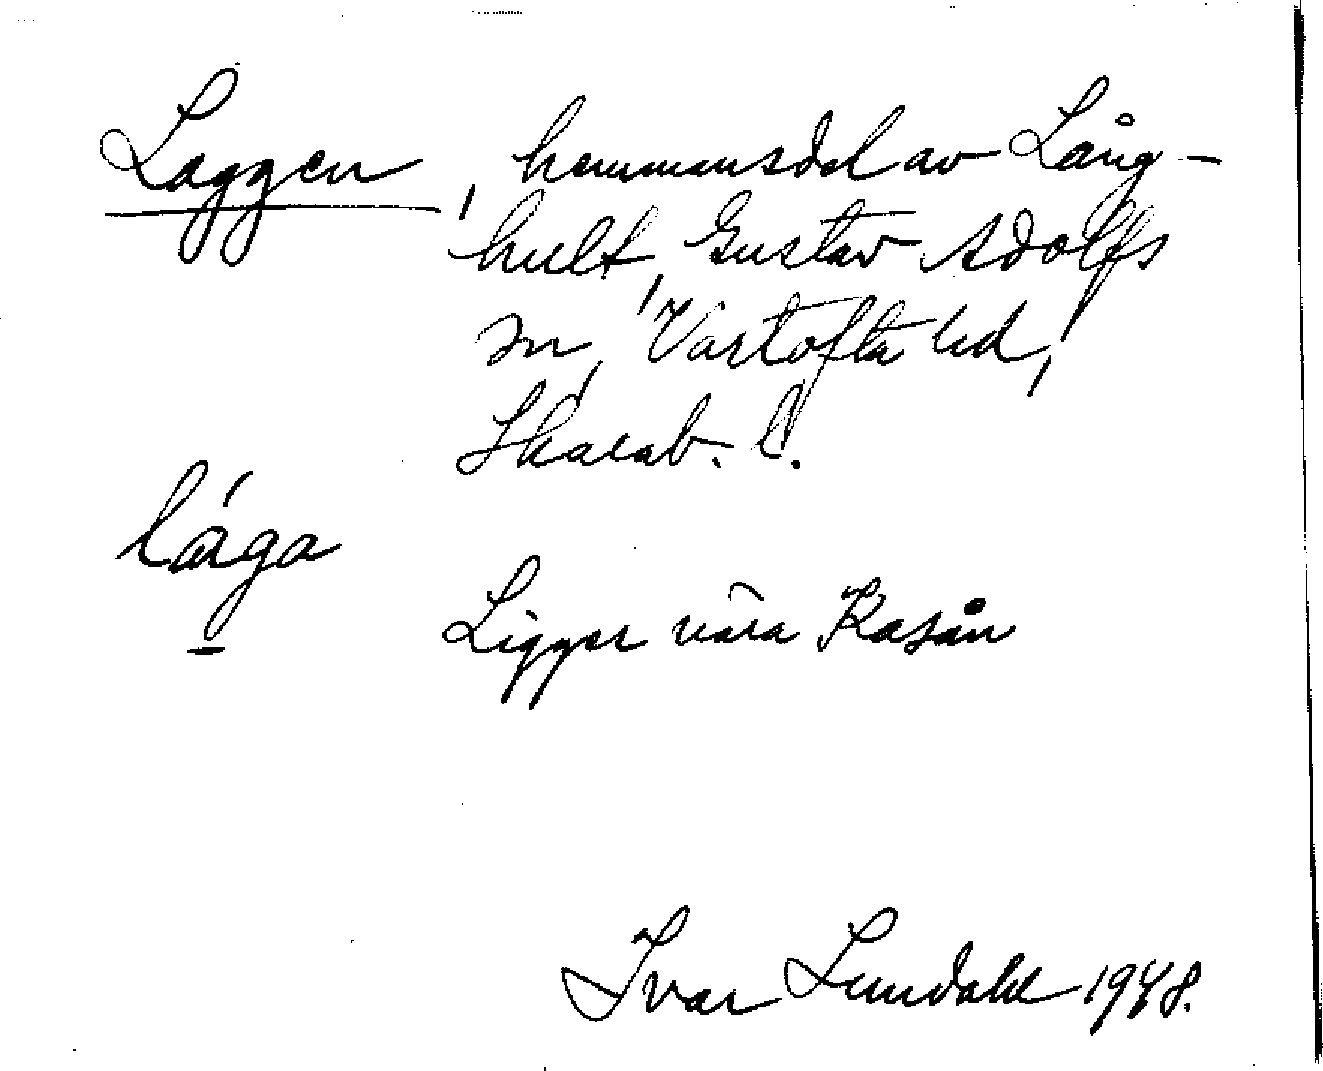 Laggen, hemmansdel av Lång-
hult, Gustav Adolfs
sn, Vartofta hd,
Skarab. l.
lága
Ligger nära Kasån
Ivar Lundahl 1948.